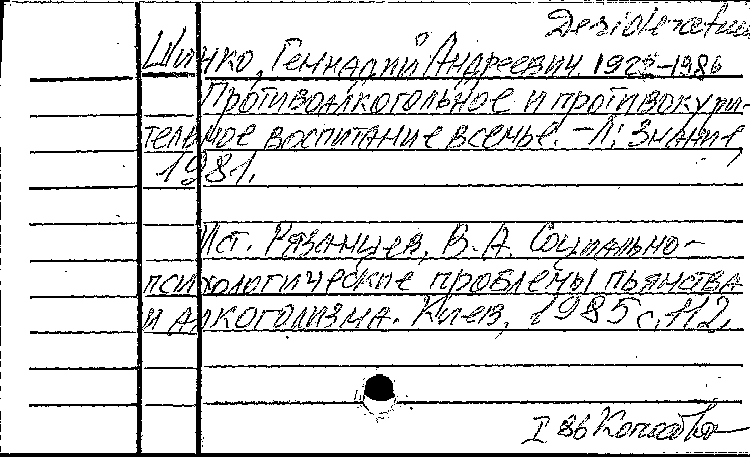 Desiderata
Шичко, Геннадий Андреевич 1922–1986
Противоалкогольное и противокури-
тельное воспитание в семье. – Л: Знание,
1981.
Ист. Рязанцев, В. А. Социально-
психологические проблемы пьянства
и алкоголизма. Киев, 1985 с. 112.
I 86